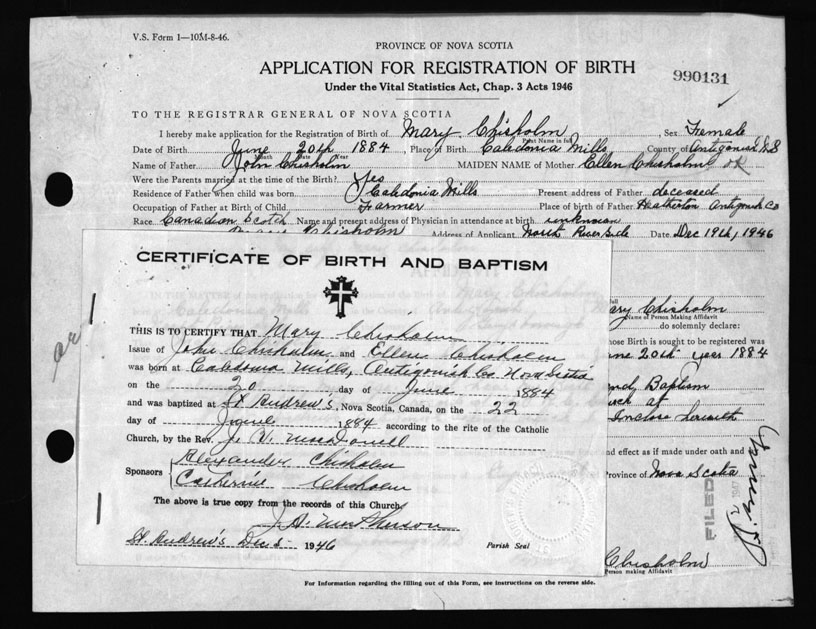 V.S. Form 1—10M-8-46.
PROVINCE OF NOVA SCOTIA
APPLICATION FOR REGISTRATION OF BIRTH
990131
Under the Vital Statistics Act, Chap. 3 Acts 1946
TO THE REGISTRAR GENERAL OF NOVA SCOTIA
I hereby make application for the Registration of Birth of Mary Chisholm, Sex Female
Print Name in full
Date of Birth June 20th 1884, Place of Birth Caledonia Mills, County of Antigonish N.S
Month Date Year
Name of Father John Chisholm MAIDEN NAME of Mother Ellen Chisholm OK
Were the Parents married at time of the Birth? Yes
Residence of Father when child was born Caledonia Mills Present address of Father deceased
Occupation of Father at Birth of Child Farmer Place of birth of Father Heatherton Antigonish Co
Race Canadian Scotch Name and present address of Physician in attendance at birth unknown
Chisholm Address of Applicant North River Side Date Dec 19th, 1946
CERTIFICATE OF BIRTH AND BAPTISM
THIS IS TO CERTIFY THAT Mary Chisholm
Issue of John Chisholm and Ellen Chisholm
was born at Caledonia Mills, Antigonish Co Nova Scotia
on the 20 day of June 1884
and was baptized at St Andrew's, Nova Scotia, Canada, on the 22
day of June 1884 according to the rite of the Catholic
Church, by the Rev. J. V. MacDonell
Sponsors Alexander Chisholm
Catherine Chisholm
The above is true copy from the records of this Church.
J. A. MacPherson
St. Andrew's Dec 5 1946 Parish Seal
full
Mary Chisholm
Name of Person Making Affidavit
do solemnly declare:
hose Birth is sought to be registered
June 20th year 1884
and Baptism
at
Inclose herewith
and effect as if made under oath and
Province of Nova Scotia
FILED
1947
Chisholm
Person making Affidavit
For Information regarding the filling out of this Form, see instructions on the reverse side.